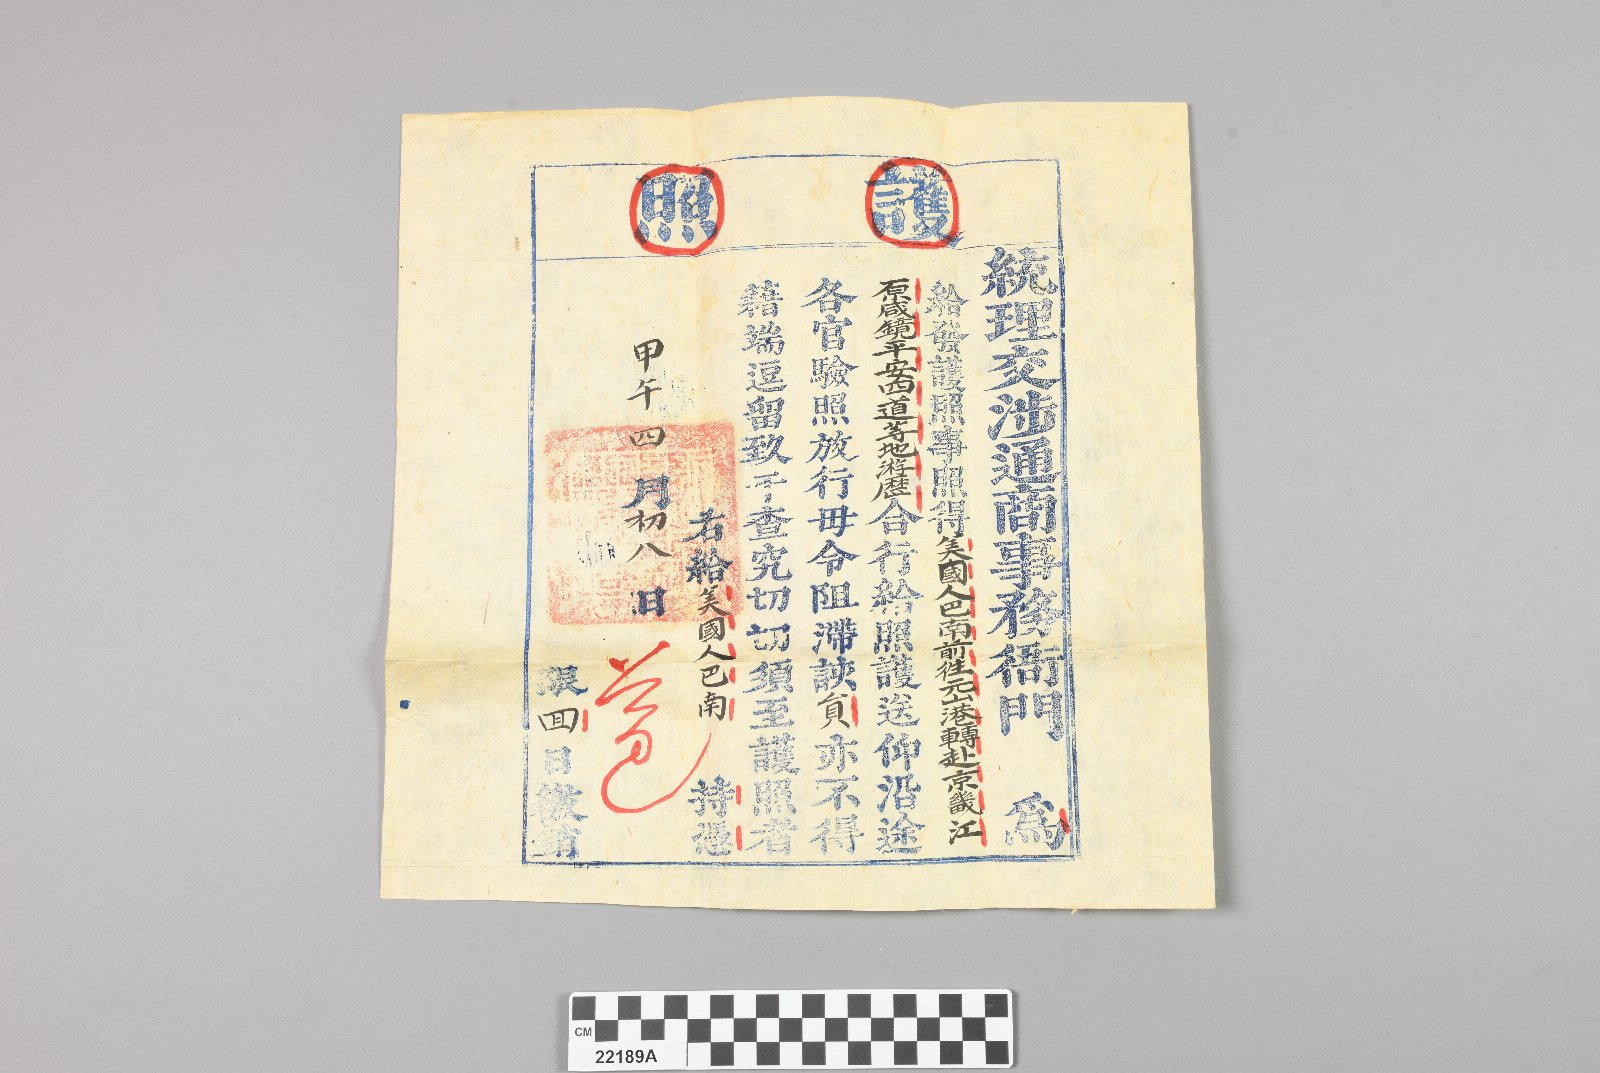 護照
統理交涉通商事務衙門 爲
給發護照事照得美國人巴南前往元山港轉赴京畿江
原咸鏡平安四道等地游歷合行給照護送仰沿途
各官驗照放行毋令阻滯該員亦不得
藉端逗留致干查究切切須至護照者
右給美國人巴南 持憑
甲午四月初八日
限回日繳銷
CM
22189A